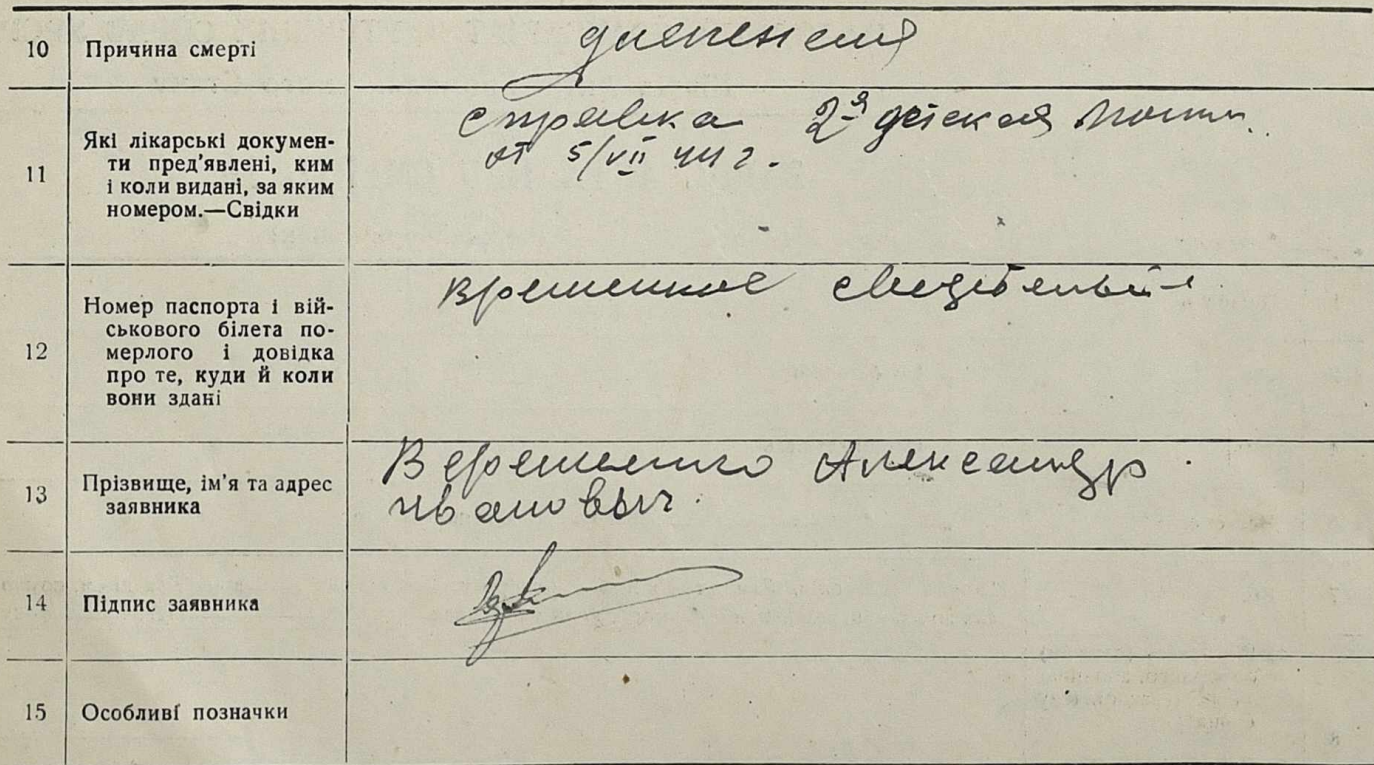 10 Причина смерти
11 Які лікарські докумен-
ти пред'явлені, ким
і коли видані, за яким
номером.—Свідки
справка 2-я детская
от 5/VII 44 г.
12 Номер паспорта і вій-
ськового білета по-
мерлого і довідка
про те, куди й коли
вони здані
временное
13 Прізвище, ім'я та адрес
заявника
Александр
Ивановыч
14 Підпис заявника
15 Особливі позначки